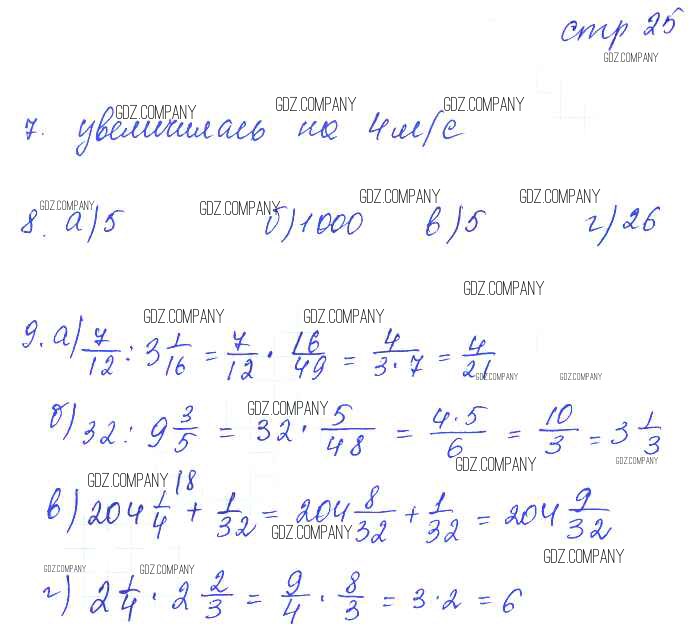 стр 25
GDZ.COMPANY
GDZ.COMPANY GDZ.COMPANY GDZ.COMPANY
7. увеличилась на 4м/с
GDZ.COMPANY GDZ.COMPANY GDZ.COMPANY GDZ.COMPANY
8. а) 5 б) 1000 в) 5 г) 26
GDZ.COMPANY
GDZ.COMPANY GDZ.COMPANY
9. а) 7/12 : 3 1/16 = 7/12 · 16/49 = 4/(3·7) = 4/21
GDZ.COMPANY GDZ.COMPANY
GDZ.COMPANY
б) 32 : 9 3/5 = 32 · 5/48 = (4·5)/6 = 10/3 = 3 1/3
GDZ.COMPANY GDZ.COMPANY
GDZ.COMPANY
в) 204 1/4 \8 + 1/32 = 204 8/32 + 1/32 = 204 9/32
GDZ.COMPANY
GDZ.COMPANY
GDZ.COMPANY GDZ.COMPANY
г) 2 1/4 · 2 2/3 = 9/4 · 8/3 = 3·2 = 6